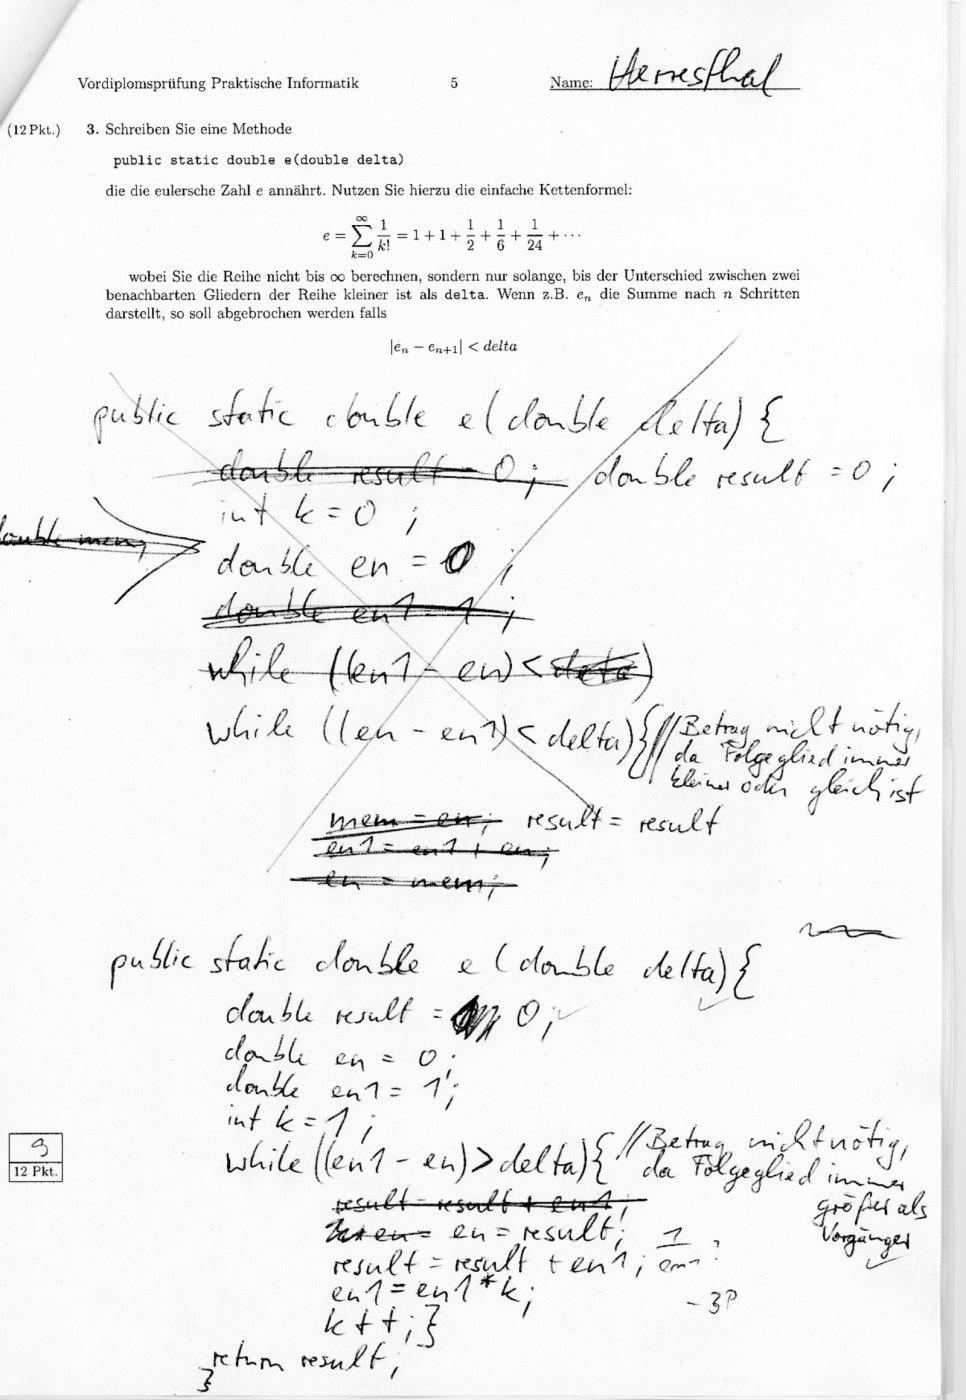 Vordiplomsprüfung Praktische Informatik 5 Name: Herresthal
(12 Pkt.) 3. Schreiben Sie eine Methode
public static double e(double delta)
die die eulersche Zahl e annährt. Nutzen Sie hierzu die einfache Kettenformel:
e = ∑_{k=0}^{∞} 1/k! = 1 + 1 + 1/2 + 1/6 + 1/24 + ···
wobei Sie die Reihe nicht bis ∞ berechnen, sondern nur solange, bis der Unterschied zwischen zwei
benachbarten Gliedern der Reihe kleiner ist als delta. Wenn z.B. e_n die Summe nach n Schritten
darstellt, so soll abgebrochen werden falls
|e_n − e_{n+1}| < delta
public static double e(double delta){
double result = 0; double result = 0;
int k = 0 ;
double mem;
double en = 0 ;
double en1 = 1 ;
while ((en1 - en) < delta)
while ((en - en1) < delta){ // Betrag nicht nötig,
da Folgeglied immer
kleiner oder gleich ist
mem = en; result = result
en1 = en1 + en;
en = mem;
public static double e(double delta){
double result = 0;
double en = 0;
double en1 = 1;
int k = 1;
while ((en1 - en) > delta){ // Betrag nicht nötig,
da Folgeglied immer
größer als
Vorgänger
result = result + en1;
en = result;
result = result + en1; 1/en1 ?
en1 = en1 * k;
k++; }
- 3P
return result;
}
9
12 Pkt.